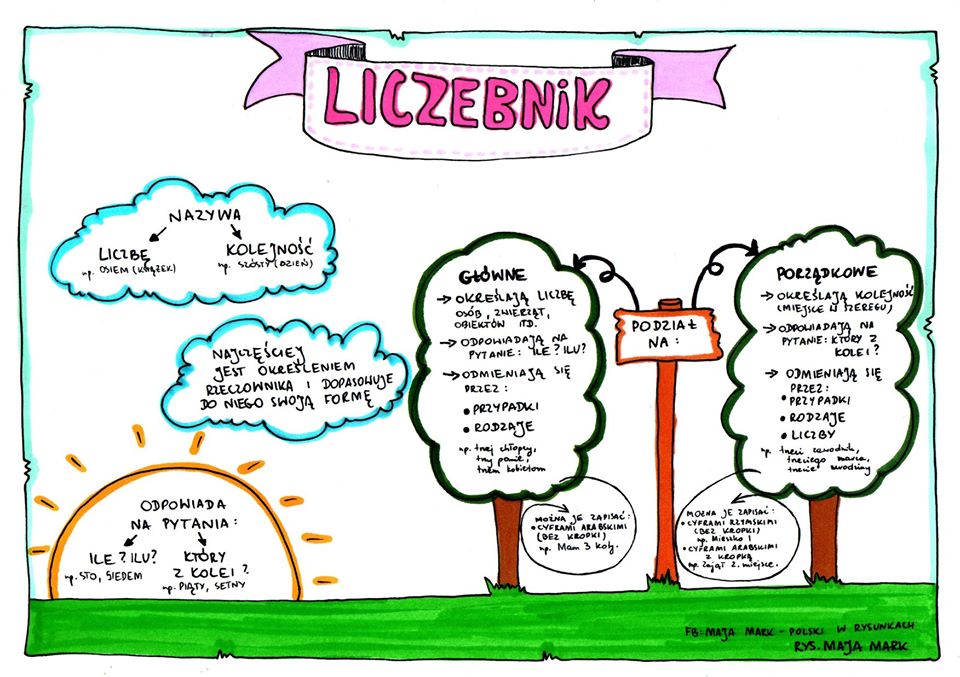 LICZEBNIK
NAZYWA
LICZBĘ
np. OSIEM (KSIĄŻEK)
KOLEJNOŚĆ
np. SZÓSTY (DZIEŃ)
NAJCZĘŚCIEJ
JEST OKREŚLENIEM
RZECZOWNIKA I DOPASOWUJE
DO NIEGO SWOJĄ FORMĘ
ODPOWIADA
NA PYTANIA:
ILE? ILU?
np. STO, SIEDEM
KTÓRY
Z KOLEI?
np. PIĄTY, SETNY
PODZIAŁ
NA:
GŁÓWNE
→ OKREŚLAJĄ LICZBĘ
OSÓB, ZWIERZĄT,
OBIEKTÓW ITD.
→ ODPOWIADAJĄ NA
PYTANIE: ILE? ILU?
→ ODMIENIAJĄ SIĘ
PRZEZ:
• PRZYPADKI
• RODZAJE
np. trzej chłopcy,
trzy panie,
trzem kobietom
MOŻNA JE ZAPISAĆ:
• CYFRAMI ARABSKIMI
(BEZ KROPKI)
np. Mam 3 koty.
PORZĄDKOWE
→ OKREŚLAJĄ KOLEJNOŚĆ
(MIEJSCE W SZEREGU)
→ ODPOWIADAJĄ NA
PYTANIE: KTÓRY Z
KOLEI?
→ ODMIENIAJĄ SIĘ
PRZEZ:
• PRZYPADKI
• RODZAJE
• LICZBY
np. trzeci zawodnik,
trzeciego marca,
trzecie urodziny
MOŻNA JE ZAPISAĆ:
• CYFRAMI RZYMSKIMI
(BEZ KROPKI)
np. Mieszko I
• CYFRAMI ARABSKIMI
Z KROPKĄ
np. Zajął 2. miejsce.
FB: MAJA MARK - POLSKI W RYSUNKACH
RYS. MAJA MARK